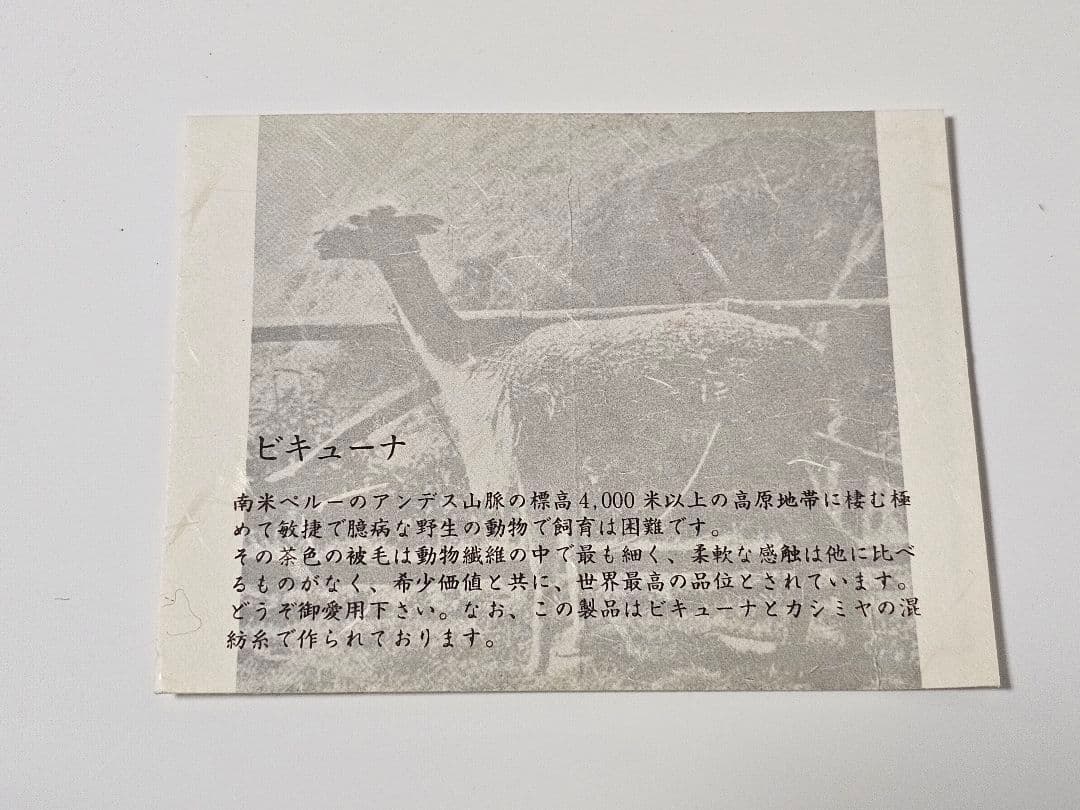 ビキューナ
南米ペルーのアンデス山脈の標高4,000米以上の高原地帯に棲む極
めて敏捷で臆病な野生の動物で飼育は困難です。
その茶色の被毛は動物繊維の中で最も細く、柔軟な感触は他に比べ
るものがなく、希少価値と共に、世界最高の品位とされています。
どうぞ御愛用下さい。なお、この製品はビキューナとカシミヤの混
紡糸で作られております。